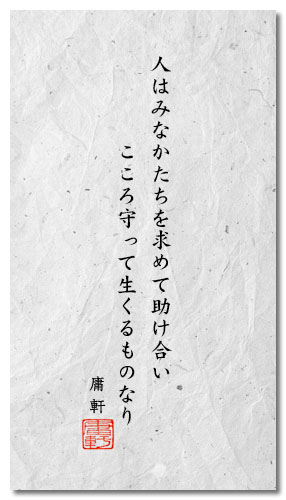 人はみなかたちを求めて助け合い
こころ守って生くるものなり
庸軒